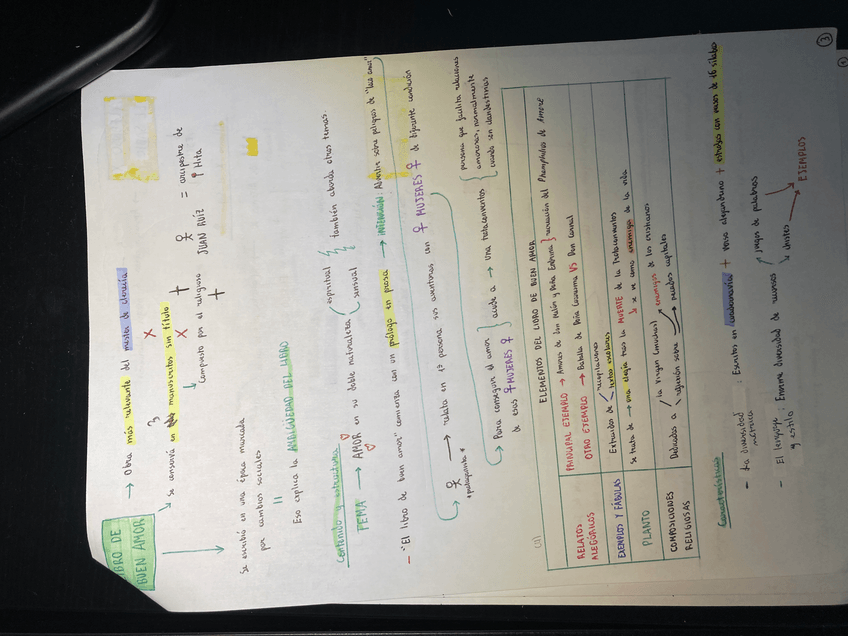 LIBRO DE
BUEN AMOR
→ Obra más relevante del mester de clerecía
↘ se conserva en 3 manuscritos sin título
↓
Compuesto por el religioso JUAN RUÍZ = arcipreste de Hita
Se escribió en una época marcada
por cambios sociales
=
Eso explica la AMBIGÜEDAD DEL LIBRO
Contenido y estructura
TEMA → AMOR en su doble naturaleza espiritual
sensual
también aborda otros temas.
- "El libro de buen amor" comienza con un prólogo en prosa → INTENCIÓN: Advertir sobre peligros de "loco amor"
→ relata en 1ª persona sus aventuras con MUJERES de diferente condición
* protagonista *
→ Para conseguir el amor
de esas MUJERES
acude a → una trotaconventos
persona que facilita relaciones
amorosas, normalmente
cuando son clandestinas
ELEMENTOS DEL LIBRO DE BUEN AMOR
RELATOS
ALEGÓRICOS
PRINCIPAL EJEMPLO → Amores de Don Melón y Doña Endrina } recreación del Pamphilus de Amore
OTRO EJEMPLO → Batalla de Doña Cuaresma VS Don Carnal
EJEMPLOS Y FÁBULAS
Extraídos de recopilaciones
textos escolares
PLANTO
se trata de → una elegía tras la MUERTE de la Trotaconventos
↳ se ve como enemigo de la vida
COMPOSICIONES
RELIGIOSAS
Dedicadas a la Virgen (muchas)
reflexión sobre enemigos de los cristianos
pecados capitales
Características
- La diversidad
métrica : Escritos en cuaderna vía + verso alejandrino + estrofas con versos de 16 sílabas
- El lenguaje
y estilo : Enorme diversidad de recursos
juegos de palabras
chistes
EJEMPLOS
3